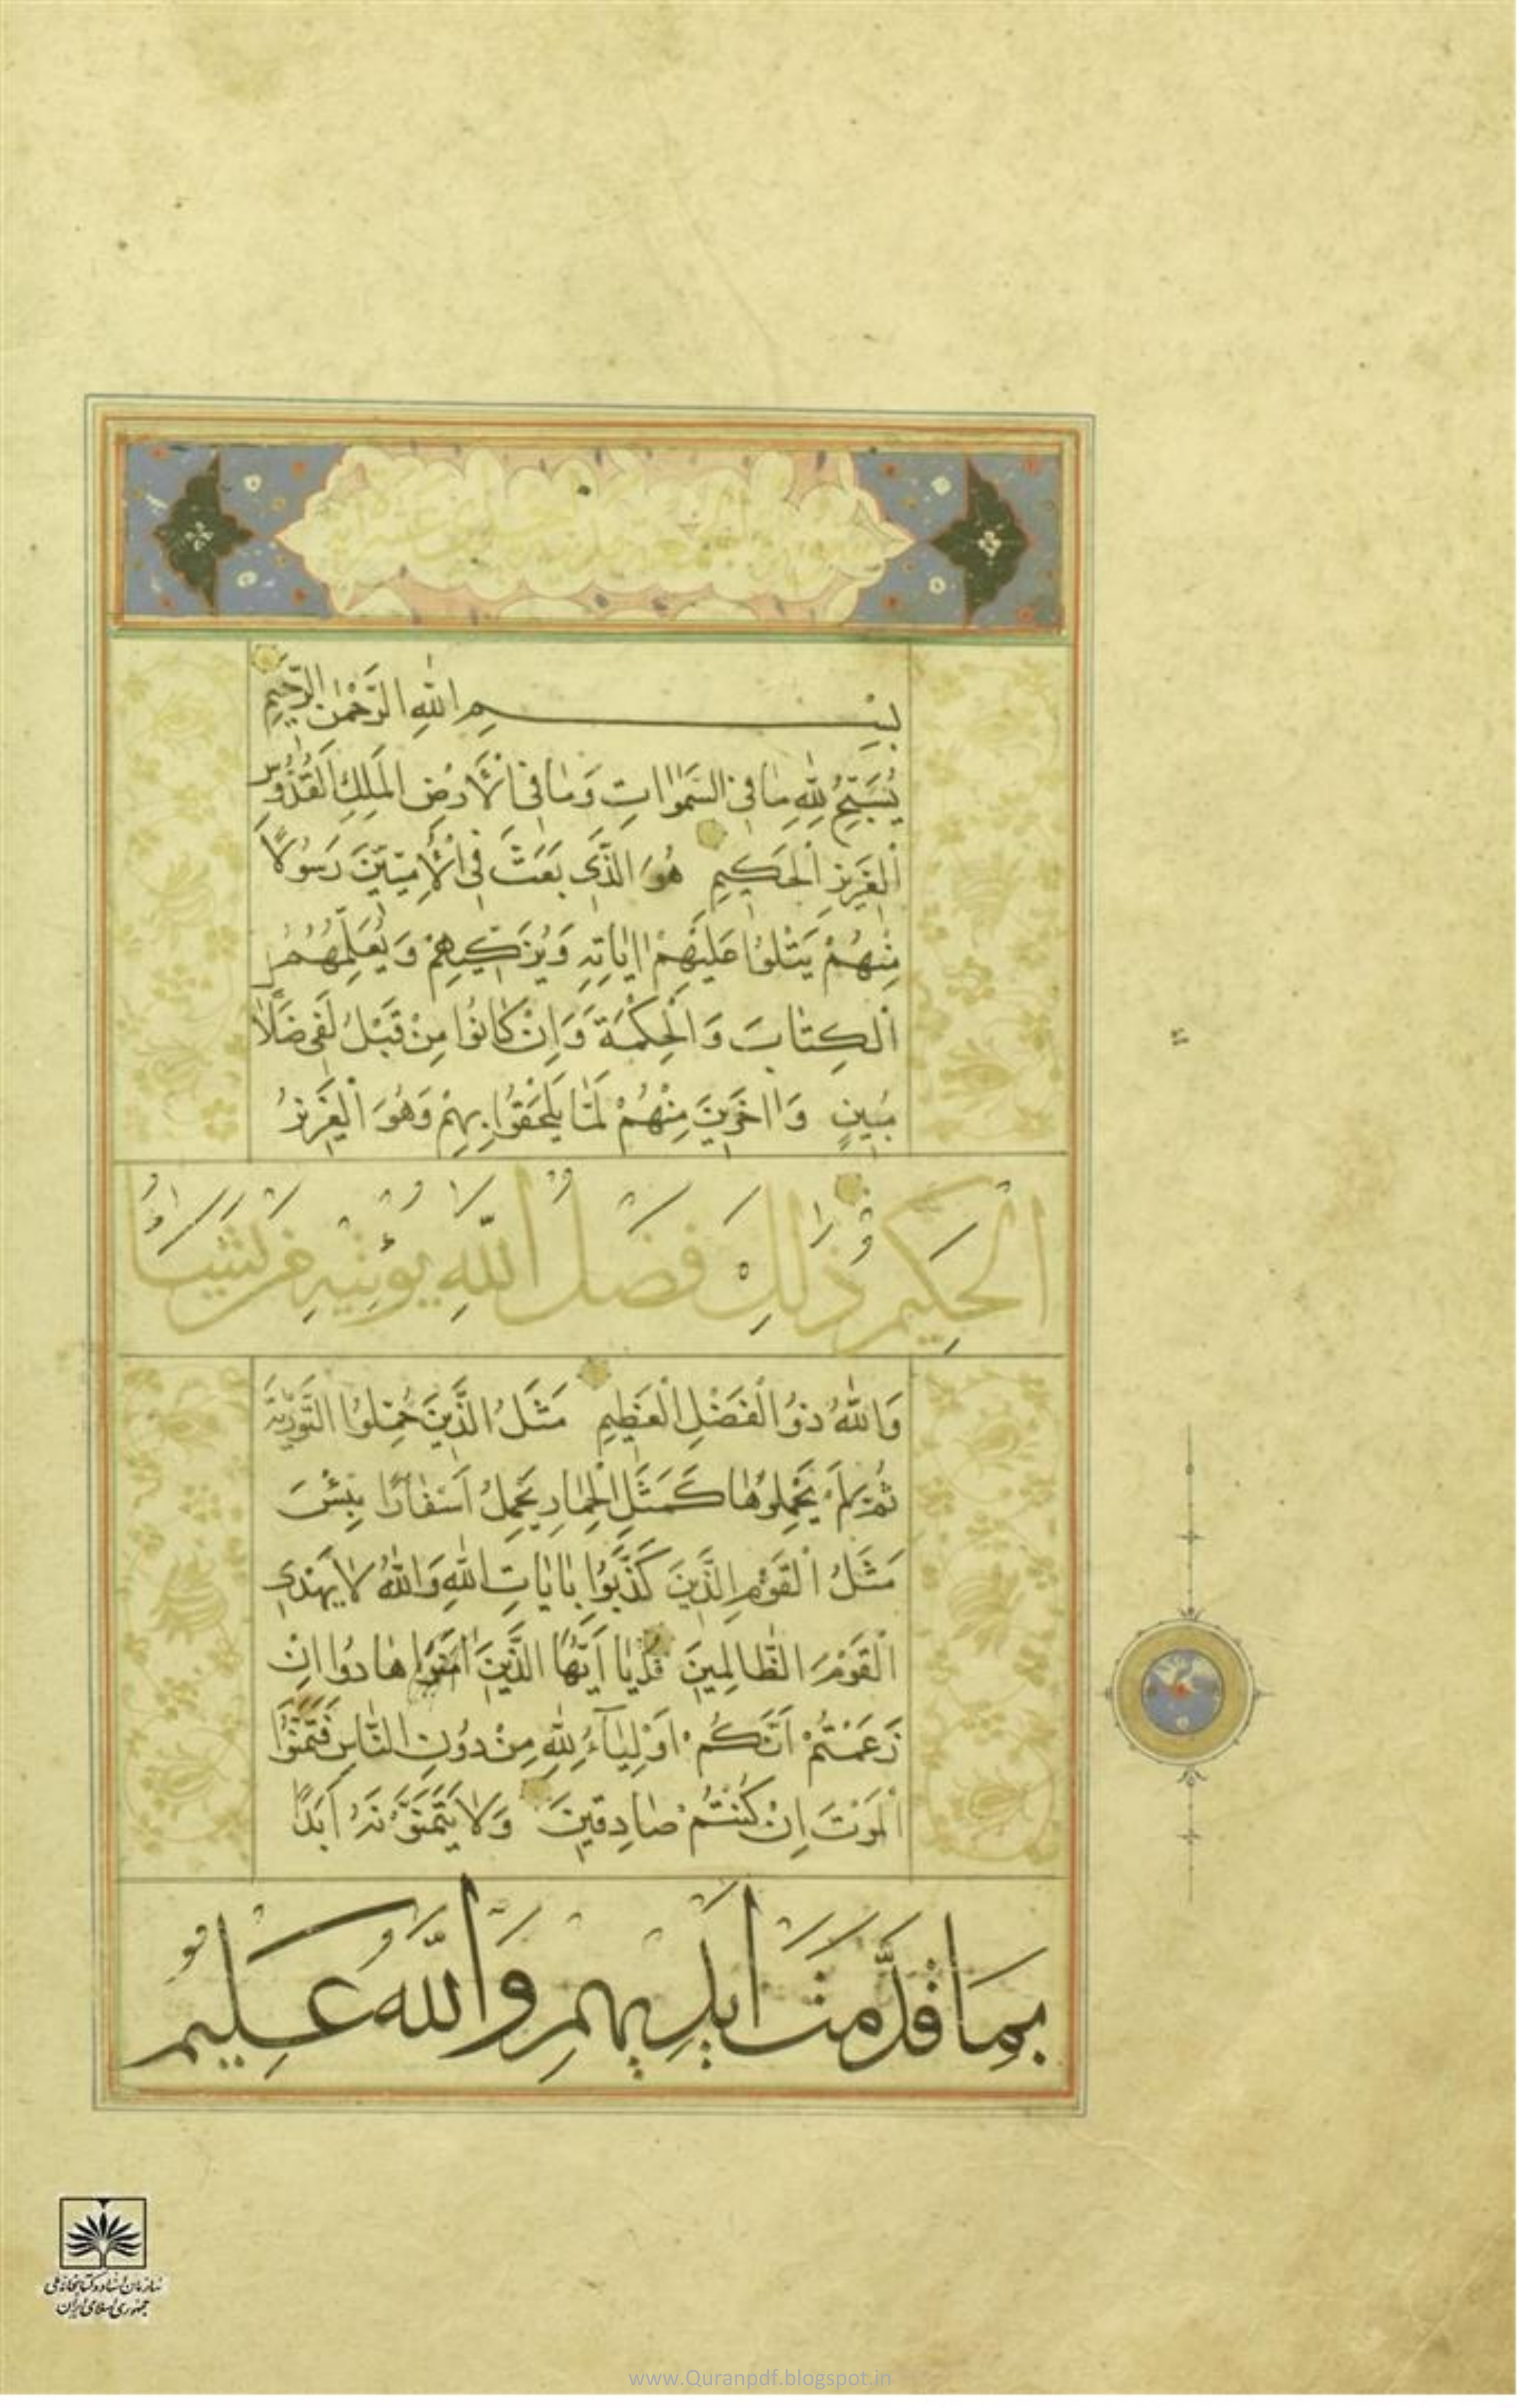 سورة الجمعة
بِسْمِ اللّٰهِ الرَّحْمٰنِ الرَّحِيمِ
يُسَبِّحُ لِلّٰهِ مٰا فِي السَّمٰوٰاتِ وَمٰا فِي الْأَرْضِ الْمَلِكِ الْقُدُّوسِ
الْعَزِيزِ الْحَكِيمِ هُوَ الَّذِي بَعَثَ فِي الْأُمِّيِّينَ رَسُولًا
مِنْهُمْ يَتْلُوا عَلَيْهِمْ اٰيٰاتِهِ وَيُزَكِّيهِمْ وَيُعَلِّمُهُمُ
الْكِتٰابَ وَالْحِكْمَةَ وَإِنْ كٰانُوا مِنْ قَبْلُ لَفِي ضَلٰالٍ
مُبِينٍ وَاٰخَرِينَ مِنْهُمْ لَمّٰا يَلْحَقُوا بِهِمْ وَهُوَ الْعَزِيزُ
الْحَكِيمُ ذٰلِكَ فَضْلُ اللّٰهِ يُؤْتِيهِ مَنْ يَشَاءُ
وَاللّٰهُ ذُو الْفَضْلِ الْعَظِيمِ مَثَلُ الَّذِينَ حُمِّلُوا التَّوْرٰيةَ
ثُمَّ لَمْ يَحْمِلُوهٰا كَمَثَلِ الْحِمٰارِ يَحْمِلُ اَسْفٰارًا بِئْسَ
مَثَلُ الْقَوْمِ الَّذِينَ كَذَّبُوا بِاٰيٰاتِ اللّٰهِ وَاللّٰهُ لٰا يَهْدِي
الْقَوْمَ الظّٰالِمِينَ قُلْ يٰا اَيُّهَا الَّذِينَ هٰادُوا اِنْ
زَعَمْتُمْ اَنَّكُمْ اَوْلِيٰآءُ لِلّٰهِ مِنْ دُونِ النّٰاسِ فَتَمَنَّوُا
الْمَوْتَ اِنْ كُنْتُمْ صٰادِقِينَ وَلٰا يَتَمَنَّوْنَهُ اَبَدًا
بِمَا قَدَّمَتْ اَيْدِيهِمْ وَاللّٰهُ عَلِيمٌ
سازمان اسناد و کتابخانه ملی
جمهوری اسلامی ایران
www.Quranpdf.blogspot.in